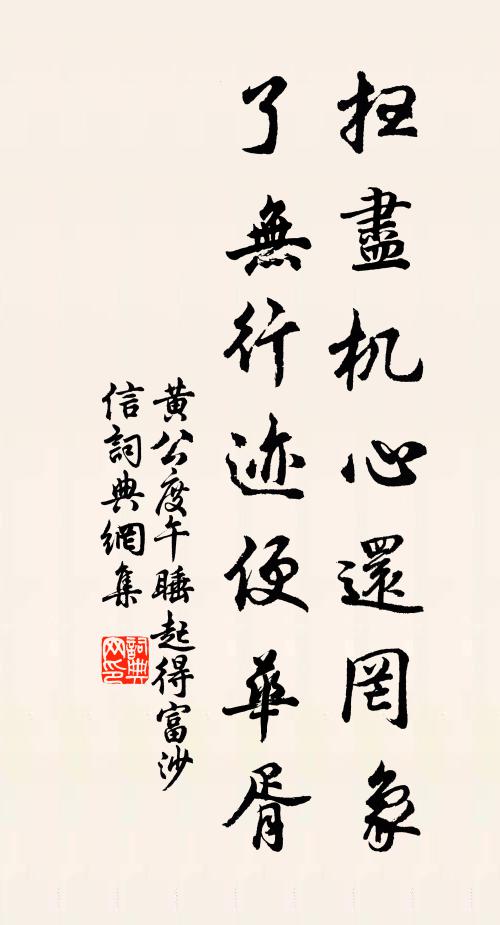 扫盡机心還罔象
了無行迹便華胥
黄公度午睡起得富沙
信詞典網集
詞典网印